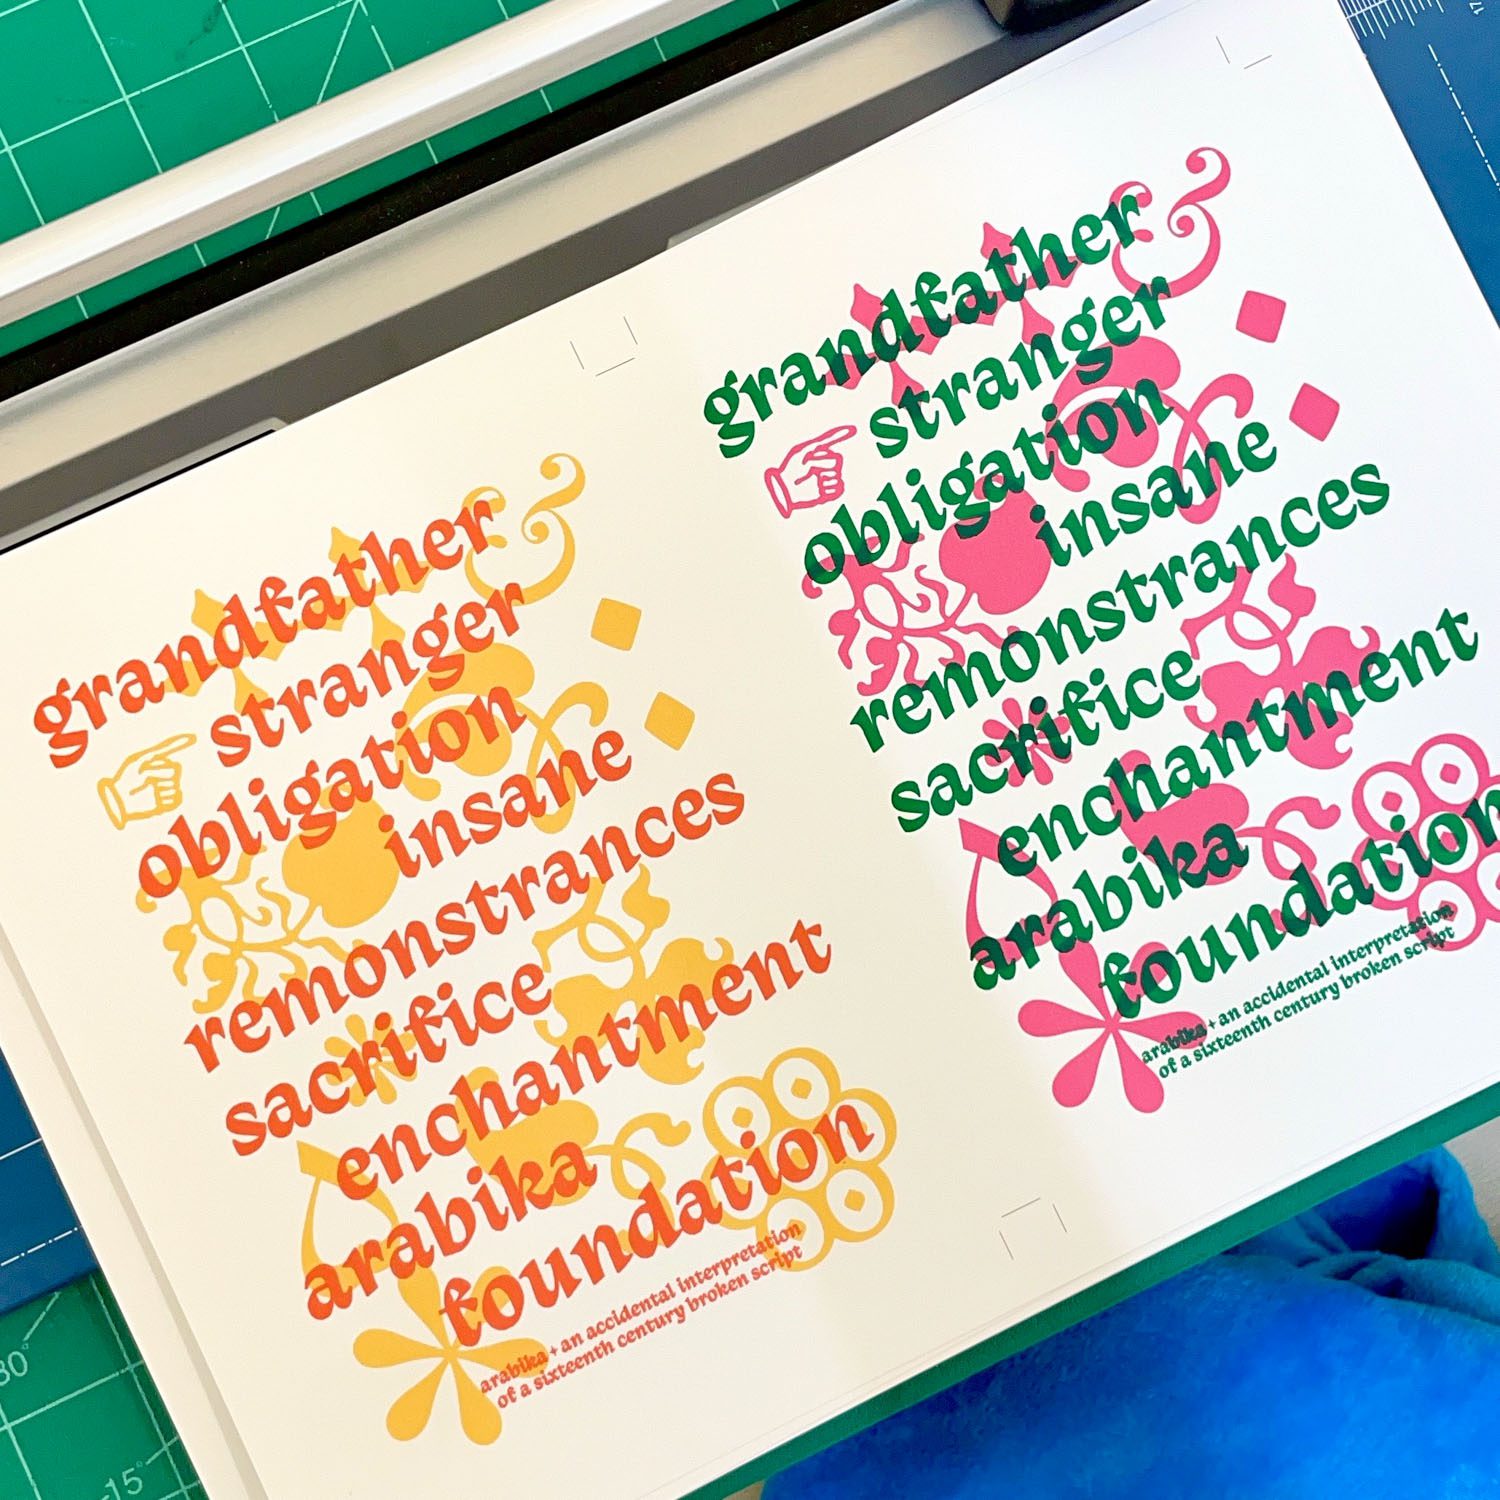 grandfather &
☞ stranger
obligation
insane
remonstrances
sacrifice
enchantment
arabika
foundation
arabika + an accidental interpretation
of a sixteenth century broken script
grandfather &
☞ stranger
obligation
insane
remonstrances
sacrifice
enchantment
arabika
foundation
arabika + an accidental interpretation
of a sixteenth century broken script
15°
17